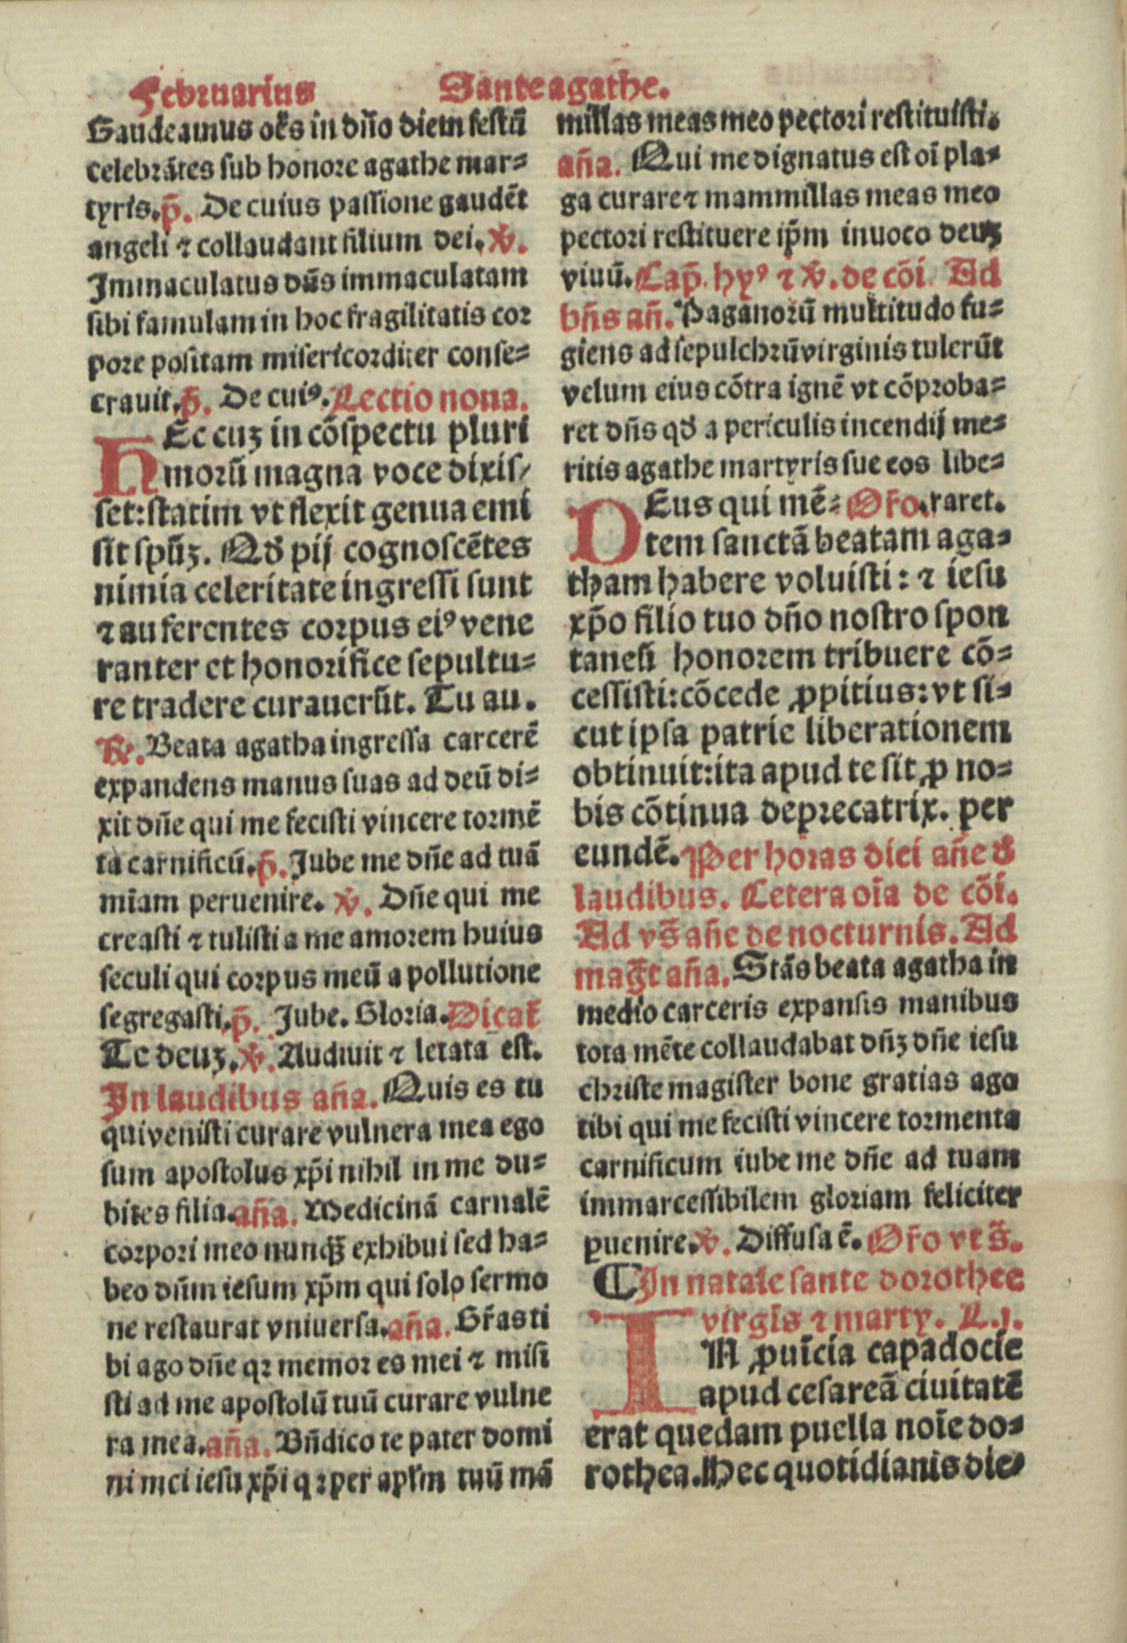 Februarius Sante agathe.
Gaudeamus oẽs in dño diem festũ
celebrãtes sub honore agathe mar⸗
tyris. p̃. De cuius passione gaudẽt
angeli ⁊ collaudant filium dei. ℣.
Immaculatus dñs immaculatam
sibi famulam in hoc fragilitatis cor
pore positam misericorditer conse⸗
crauit. p̃. De cuiꝰ. Lectio nona.
HEc cuʒ in cõspectu pluri
morũ magna voce dixis⸗
set: statim vt flexit genua emi
sit spũʒ. Qđ pij cognoscẽtes
nimia celeritate ingressi sunt
⁊ auferentes corpus eiꝰ vene
ranter et honorifice sepultu⸗
re tradere curauerũt. Tu au.
℟. Beata agatha ingressa carcerẽ
expandens manus suas ad deũ di⸗
xit dñe qui me fecisti vincere tormẽ
ta carnificũ. p̃. Jube me dñe ad tuã
miãm peruenire. ℣. Dñe qui me
creasti ⁊ tulisti a me amorem huius
seculi qui corpus meũ a pollutione
segregasti. p̃. Jube. Gloria. Dicat̃
Te deuʒ. ℣. Audiuit ⁊ letata est.
In laudibus aña. Quis es tu
qui venisti curare vulnera mea ego
sum apostolus xp̃i nihil in me du⸗
bites filia. aña. Medicinã carnalẽ
corpori meo nunq̃ exhibui sed ha⸗
beo dñm iesum xp̃m qui solo sermo
ne restaurat vniuersa. aña. Gr̃as ti
bi ago dñe qꝛ memor es mei ⁊ misi
sti ad me apostolũ tuũ curare vulne
ra mea. aña. Bñdico te pater domi
ni mei iesu xp̃i qꝛ per apl̃m tuũ mã
millas meas meo pectori restituisti.
aña. Qui me dignatus est oĩ pla⸗
ga curare ⁊ mammillas meas meo
pectori restituere ip̃m inuoco deuʒ
viuũ. Cap̃. hyꝰ ⁊ ℣. de cõi. Ad
bñs añ. Paganorũ multitudo fu⸗
giens ad sepulchrũ virginis tulerũt
velum eius cõtra ignẽ vt cõproba⸗
ret dñs qđ a periculis incendij me⸗
ritis agathe martyris sue eos libe⸗
DEus qui mẽ⸗ Or̃o. raret.
tem sanctã beatam aga⸗
tham habere voluisti: ⁊ iesu
xp̃o filio tuo dño nostro spon
tanesi honorem tribuere cõ⸗
cessisti: cõcede ꝓpitius: vt si⸗
cut ipsa patrie liberationem
obtinuit: ita apud te sit ꝓ no⸗
bis cõtinua deprecatrix. per
eundẽ. Per horas diei añe đ
laudibus. Cetera oĩa de cõi.
Ad vs̃ añe de nocturnis. Ad
mag̃t aña. Stãs beata agatha in
medio carceris expansis manibus
tota mẽte collaudabat dñʒ dñe iesu
christe magister bone gratias ago
tibi qui me fecisti vincere tormenta
carnificum iube me dñe ad tuam
immarcessibilem gloriam feliciter
ꝑuenire. ℣. Diffusa ẽ. Or̃o vt s̃.
¶ In natale sante dorothee
virgĩs ⁊ marty. L. j.
IN ꝓuĩcia capadocie
apud cesareã ciuitatẽ
erat quedam puella noĩe do⸗
rothea. Hec quotidianis die⸗